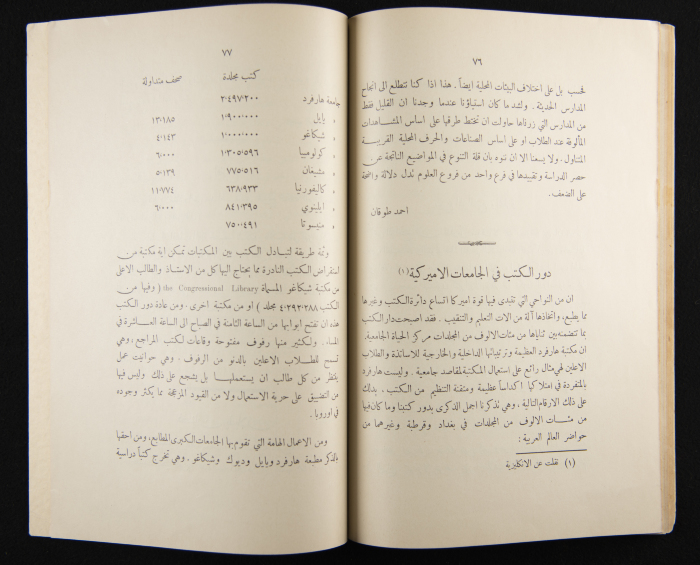 ٧٦
فحسب بل على اختلاف البيئات المحلية ايضاً. هذا اذا كنا نتطلع الى انجاح
المدارس الحديثة. ولشد ما كان استياؤنا عندما وجدنا ان القليل فقط
من المدارس التي زرناها حاولت ان تختط طرقها على اساس المشاهدات
المألوفة عند الطلاب او على اساس الصناعات والحرف المحلية القريبة
المتناول. ولا يسعنا الا ان ننوه بان قلة التنوع في المواضيع الناتجة عن
حصر الدراسة وتقييدها في فرع واحد من فروع العلوم تدل دلالة واضحة
على الضعف.
احمد طوقان
دور الكتب في الجامعات الاميركية (١)
ان من النواحي التي تتبدى فيها قوة اميركا اتساع دائرة الكتب وغيرها
مما يطبع، واتخاذها آلة من آلات التعليم والتنقيب. فقد اصبحت دار الكتب
بما تتضمنه بين ثناياها من مئات الالوف من المجلدات مركز الحياة الجامعية.
ان مكتبة هارفرد العظيمة وترتيباتها الداخلية والخارجية للاساتذة والطلاب
الاعلين لهي مثال رائع على استعمال المكتبة لمقاصد جامعية. وليست هارفرد
بالمنفردة في امتلاكها اكداساً عظيمة ومتقنة التنظيم من الكتب، يدلك
على ذلك الارقام التالية، وهي تذكرنا اجمل الذكرى بدور كتبنا وما كان فيها
من مئات الالوف من المجلدات في بغداد وقرطبة وغيرهما من
حواضر العالم العربية:
(١) نقلت عن الانكليزية
٧٧
كتب مجلدة صحف متداولة
جامعة هارفرد ٢٠٤٩٧٠٢٠٠
» يايل ١٠٩٠٠٠٠٠٠ ١٣٠١٨٥
» شيكاغو ١٠٠٠٠٠٠٠ ٤٠١٤٣
» كولومبيا ١٠٣٠٥٠٥٩٦ ٦٠٠٠٠
» مشيغان ٧٧٥٠٥١٦ ٥٠١٣٩
» كاليفورنيا ٦٣٨٠٩٣٣ ١١٠٧٧٤
» ايلينوي ٨٤١٠٣٩٥ ٦٠٠٠٠
» منيسوتا ٧٥٠٠٤٩١
وثمة طريقة لتبادل الكتب بين المكتبات تمكن اية مكتبة من
استقراض الكتب النادرة مما يحتاج اليها كل من الاستاذ والطالب الاعلى
من مكتبة شيكاغو المسماة the Congressional Library (وفيها من
الكتب ٤٠٢٩٢٠٢٨٨ مجلد) او من مكتبة اخرى. ومن عادة دور الكتب
هذه ان تفتح ابوابها من الساعة الثامنة في الصباح الى الساعة العاشرة في
المساء. ولكثير منها رفوف مفتوحة وقاعات لكتب المراجع، وهي
تسمح للطلاب الاعلين بالدنو من الرفوف. وهي حوانيت عمل
ينتظر من كل طالب ان يستعملها بل يشجع على ذلك وليس فيها
من التضييق على حرية الاستعمال ولا من القيود المزعجة مما يكثر وجوده
في اوروبا.
ومن الاعمال الهامة التي تقوم بها الجامعات الكبرى المطابع، ومن احقها
بالذكر مطبعة هارفرد ويايل وديوك وشيكاغو. وهي تخرج كتباً دراسية